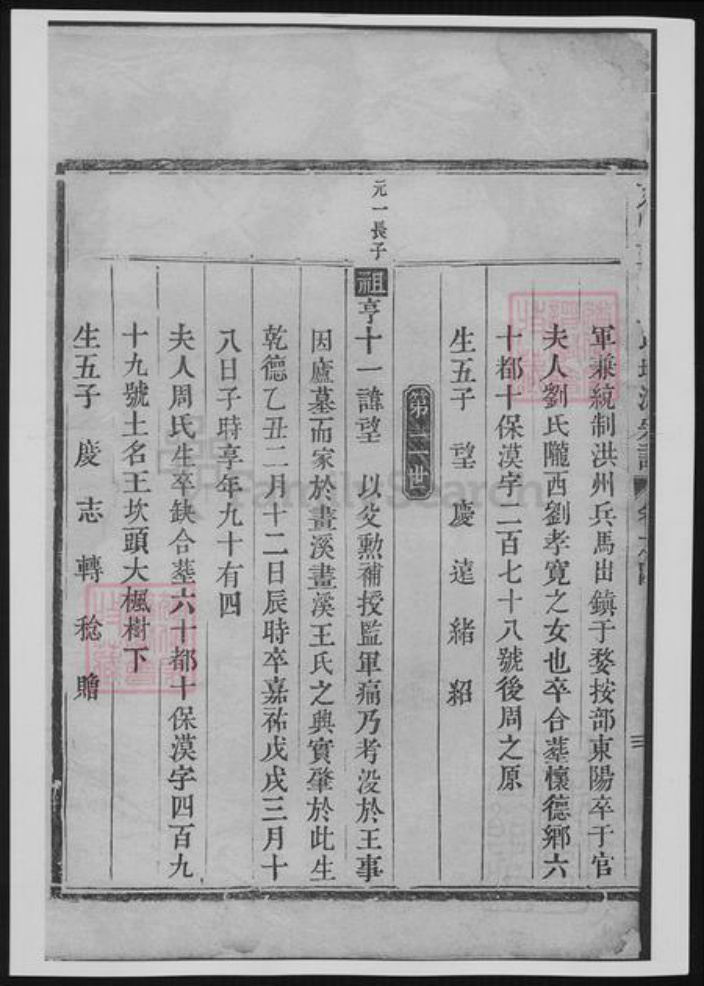 軍兼統制洪州兵馬出鎮于婺按部東陽卒于官
夫人劉氏隴西劉孝寬之女也卒合塟懷德鄉六
十都十保漠字二百七十八號後周之原
生五子 望 慶 達 緒 紹
第二世
元一長子
祖亨十一諱望 以父勲補授監軍痛乃考没於王事
因廬墓而家於畫溪畫溪王氏之興實肇於此生
乾德乙丑二月十二日辰時卒嘉祐戊戌三月十
八日子時享年九十有四
夫人周氏生卒缺合塟六十都十保漠字四百九
十九號土名王坎頭大楓樹下
生五子 慶 志 轉 稔 贈
FamilySearch